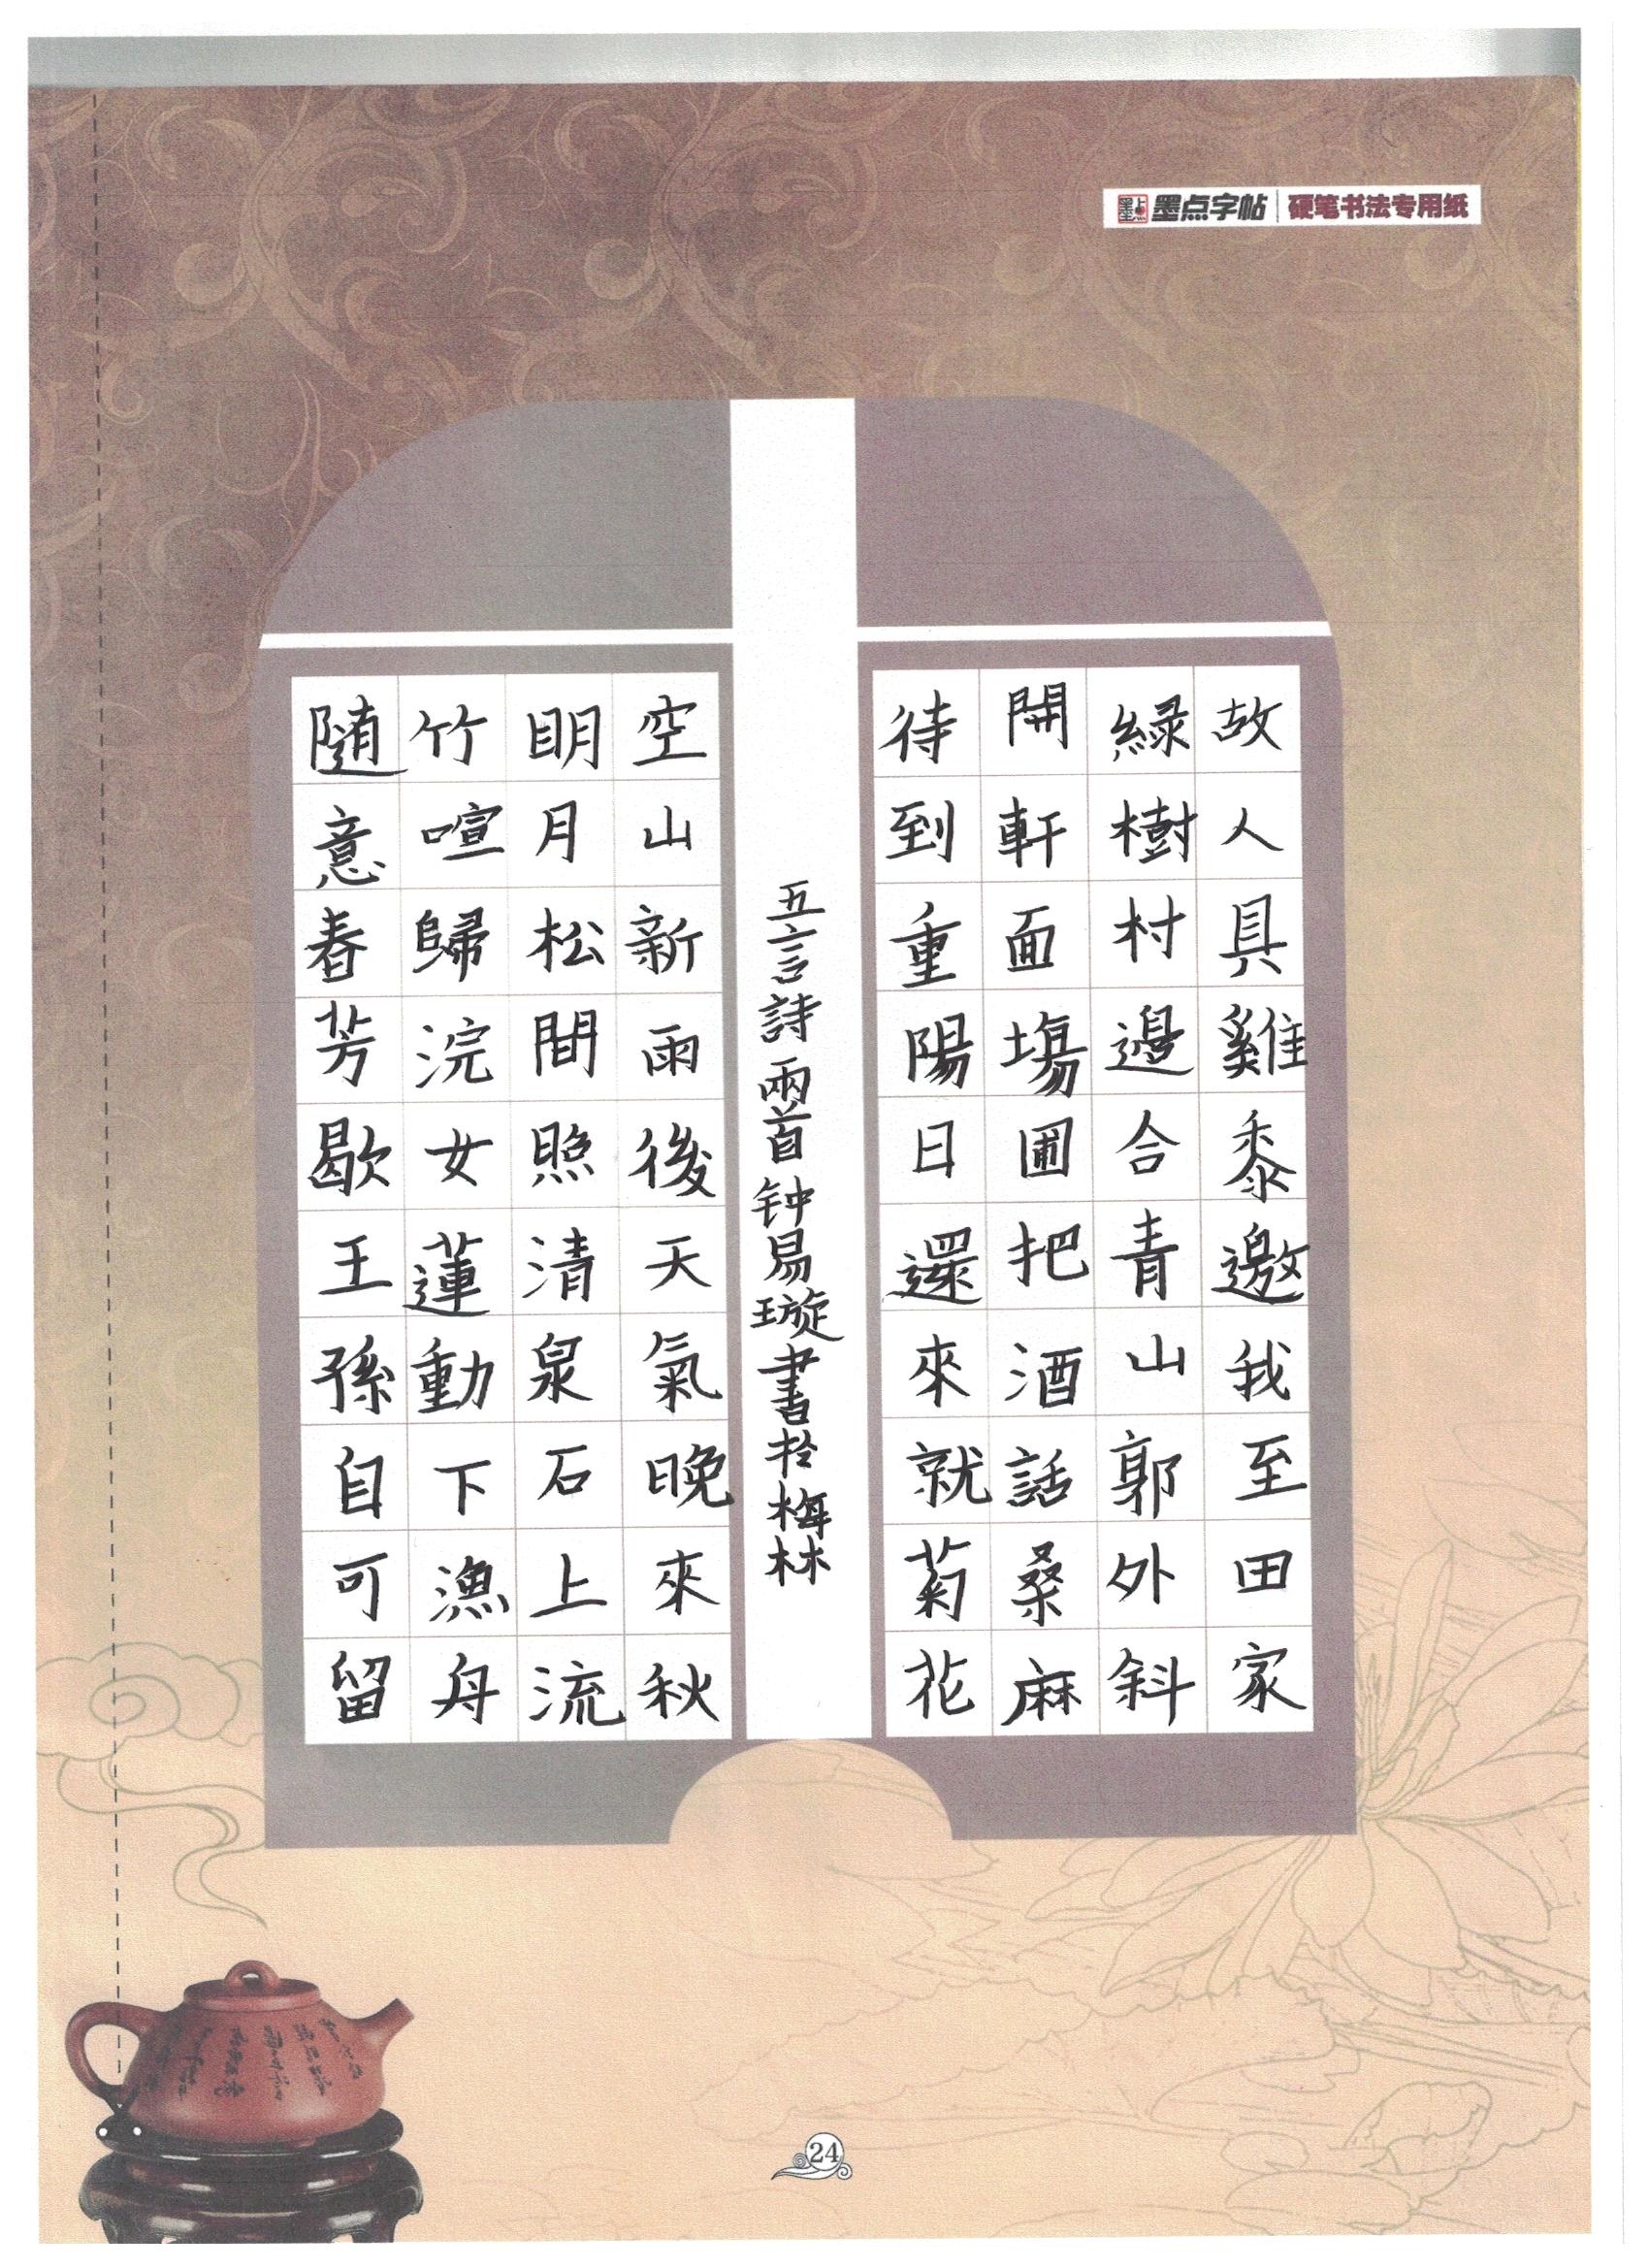 墨点字帖 硬笔书法专用纸
故人具雞黍邀我至田家
緑樹村邊合青山郭外斜
開軒面場圃把酒話桑麻
待到重陽日還來就菊花
五言詩兩首钟易璇書於梅林
空山新雨後天氣晚來秋
明月松間照清泉石上流
竹喧歸浣女蓮動下漁舟
随意春芳歇王孫自可留
24